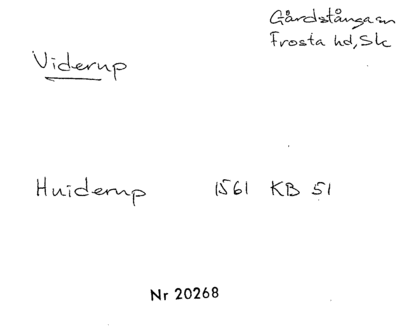 Gårdstånga sn
Frosta hd, Sk
Viderup
Huiderup 1561 KB 51
Nr 20268